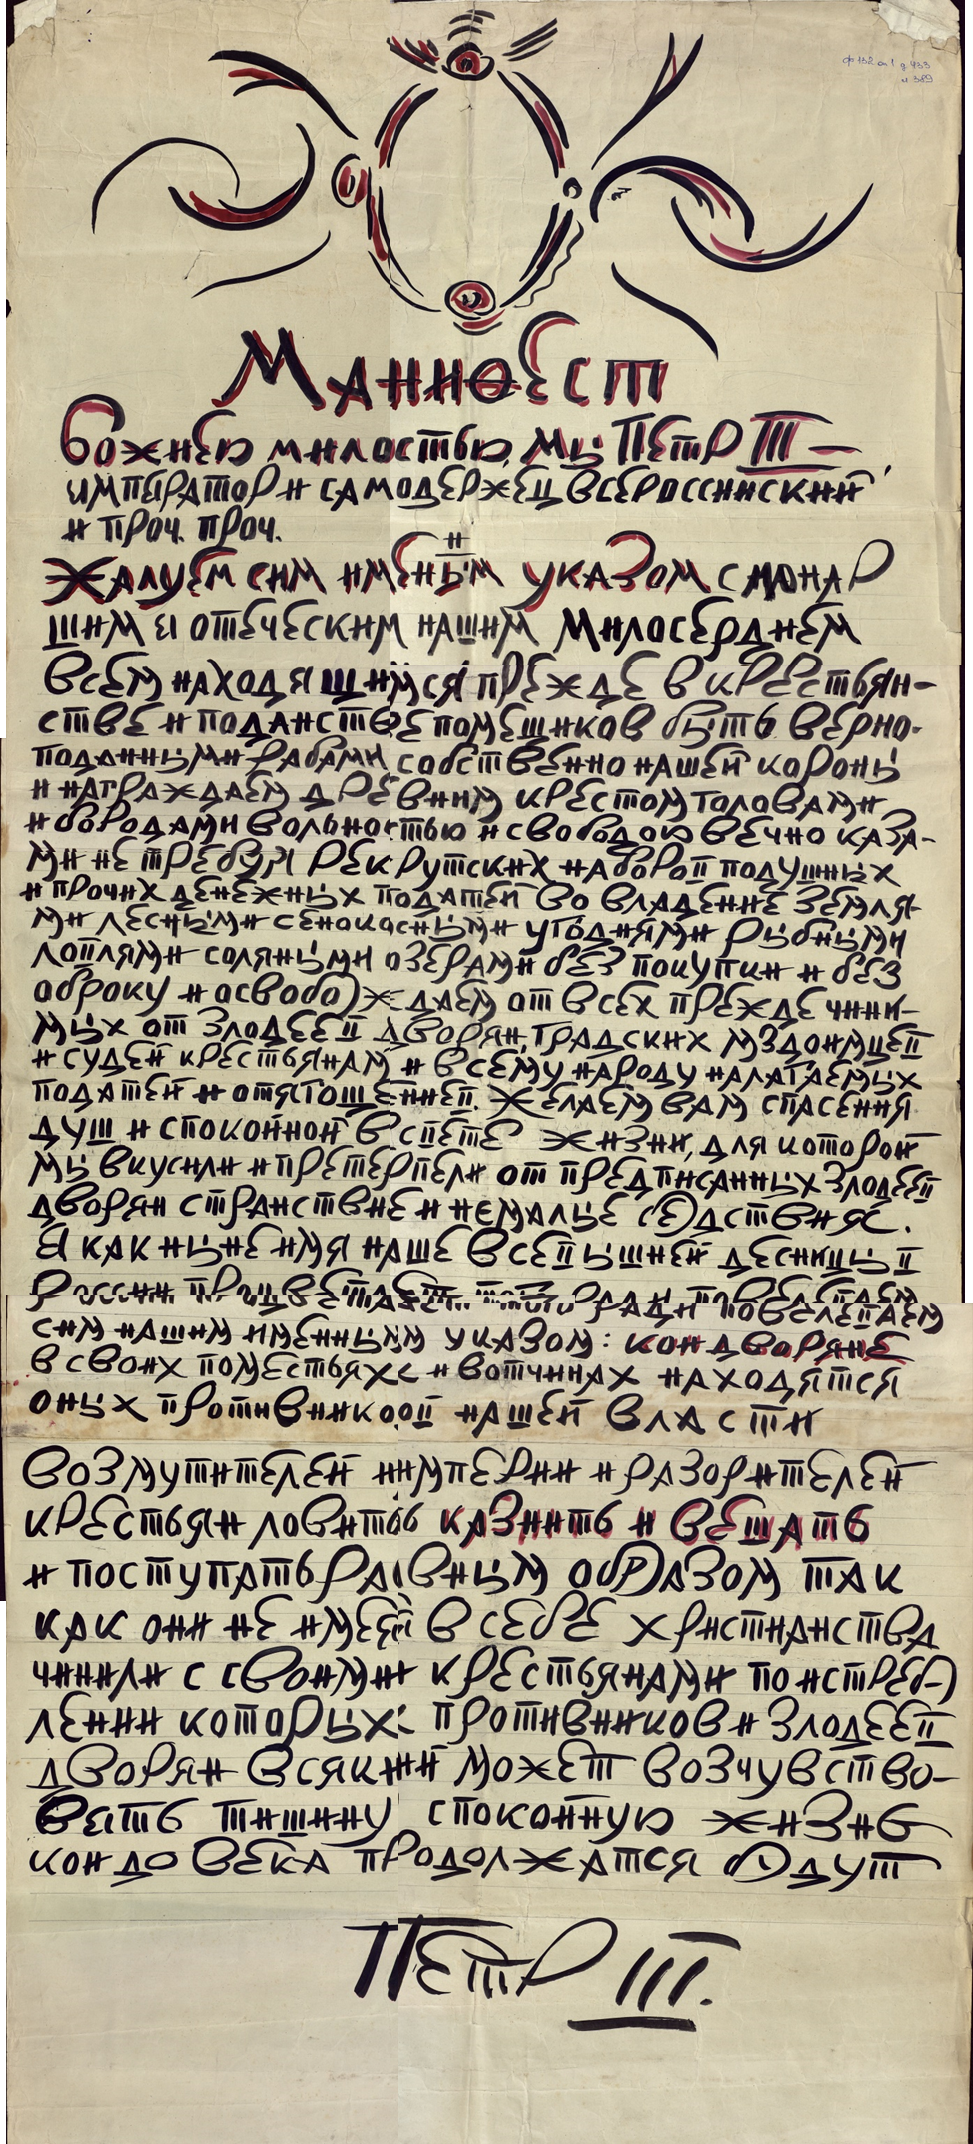 ф 132 оп 1 д 433
л 389
Манифест
Божиею милостью, Мы Петр III —
император и самодержец всероссииский
и проч. проч.
Жалуем сим именыим указом с монар
шим и отеческим нашим милосердием
всем находящимся прежде в крестьян-
стве и поданстве помещиков быть верно-
поданными рабами собственно нашей короны
и награждаем древним крестом головами
и бородами вольностью и свободою вечно каза-
ми не требуя рекрутских наборой подушных
и прочих денежных податей во владение земля-
ми лесными сенокосными угодиями рыбными
лойлями соляными озерами без покупки и без
оброку и освобождаем от всех прежде чини-
мых от злодеей дворян, градских мздоимцей
и судей крестьянам и всему народу налагаемых
податей и отягощенией. Желаем вам спасения
душ и спокойной в свете жизни, для которой
мы вкусили и претерпели от предписанных злодеей
дворян странствие и немалые бедствия.
И как ныне имя наше всейышней десницы й
России процветает того ради повелеваем
сим нашим именным указом: кои дворяне
в своих поместьях и вотчинах находятся
оных противникоой нашей власти
возмутителей иимперии и разорителей
крестьян ловить казнить и вешать
и поступать равным образом так
как они не имея в себе христианства
чинили с своими крестьянами по истреб-
лении которых противников и злодеей
дворян всякий может возчувство-
вать тишину спокойную жизнь
кои до века продолжатся будут
Петр III.